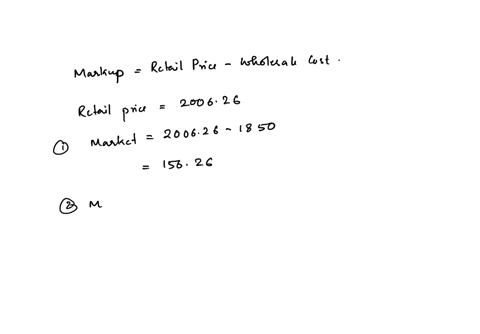 Markup = Retail Price - wholesale Cost.
Retail price = 2006.26
① Market = 2006.26 - 1850
= 156.26
② M